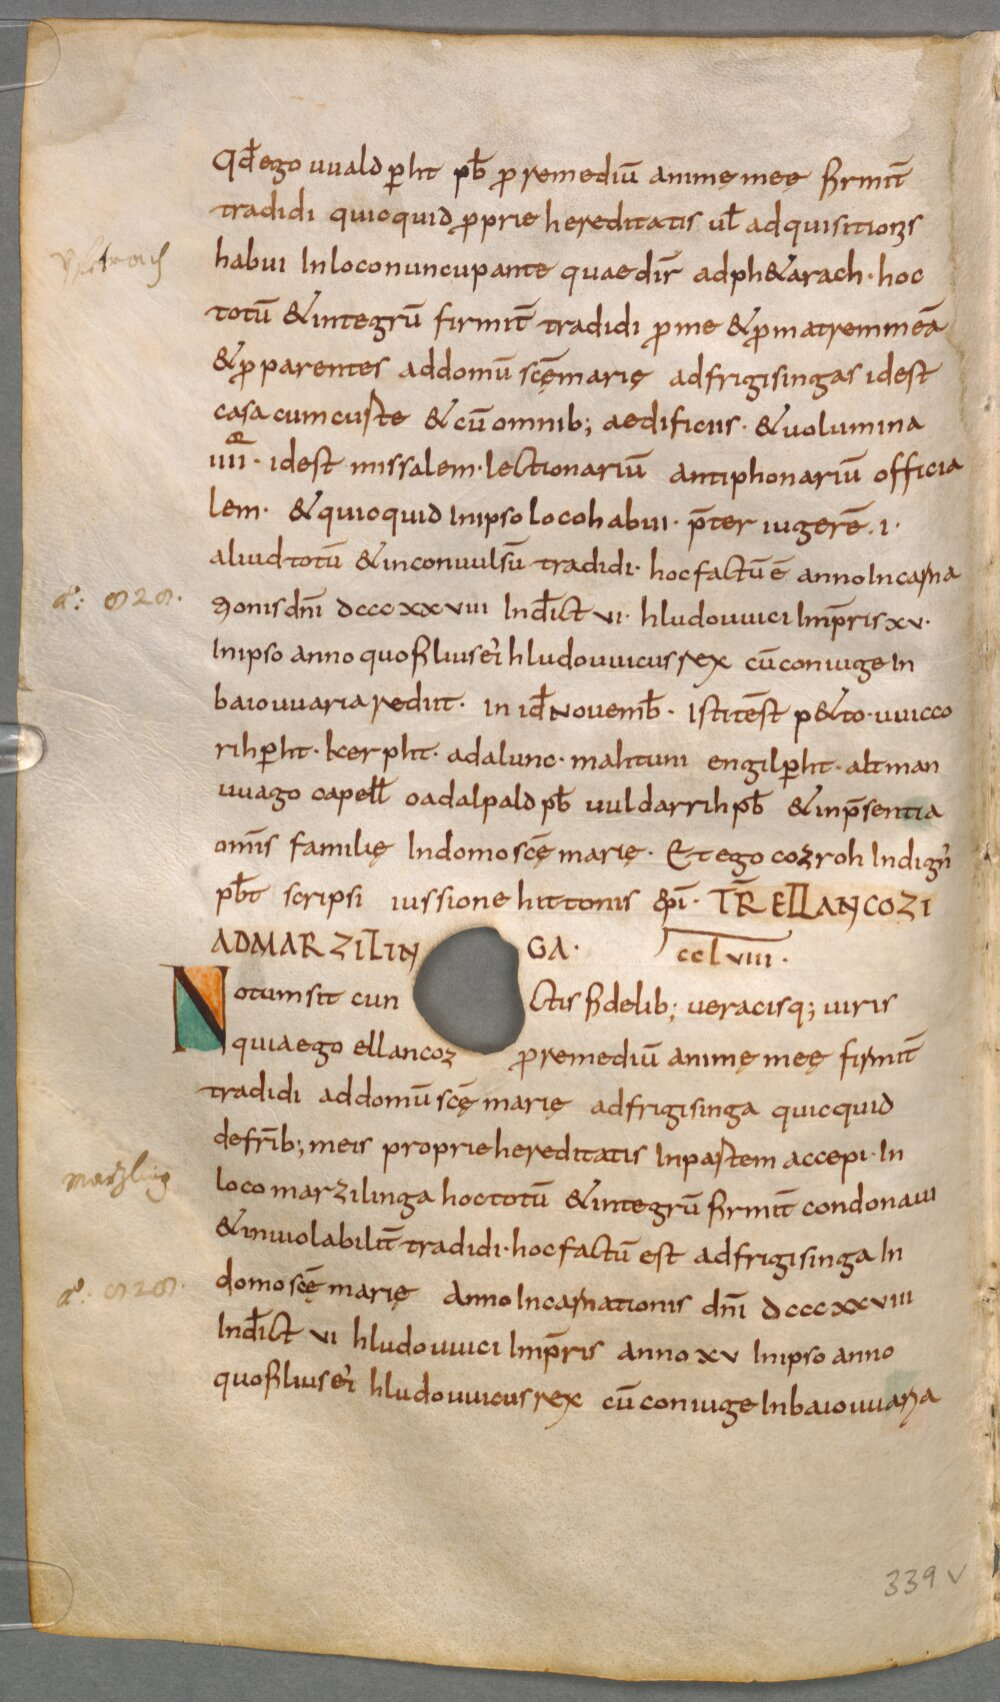 Qđ ego uualdp̄ht pb̄ ꝓ remediū animę meę firmit̄
tradidi quicquid ꝓprie hereditatis ul̄ adquisitionis
habui In loco nuncupante quae dīr adph&arach · hoc
totū & integrū firmit̄ tradidi ꝓ me & ꝓ matrem meā
& ꝓ parentes ad domū scę̄ marię ad frigisingas idest
casa cum curte & cū omnib; aedificiis · & uolumina
IIII · idest missalem · lectionariū antiphonariū officia
lem · & quicquid In ipso loco habui · p̄ter iugerē · I ·
aliud totū & inconuulsū tradidi · hoc factū ē anno Incarna
tionis dn̄i dcccxxviii Inđict vi · hludouuici Imp̄ris xv ·
In ipso anno quo filius ei' hludouuicus rex cū coniuge In
baiouuaria rediit · in iđ Nouemb̄ · Isti tēst p&to · uuicco
rihp̄ht · kerp̄ht · adalunc · mahtuni engilp̄ht · altman
uuago capell̄ oadalpald pb̄ uuldarrih pb̄ & in p̄sentia
om̄is familię In domo scę̄ marię · Et ego cozroh Indign'
pb̄t scripsi iussione hittonis ep̄i · TR̄ ELLANCOZI
AD MARZILIN GA · cclviii ·
Notum sit cun ctis fidelib; ueracisq; uiris
quia ego ellancoz ꝓ remediū animę meę firmit̄
tradidi ad domū scę̄ marię ad frigisinga quicquid
de fr̄ib; meis proprie hereditatis In partem accepi · In
loco marzilinga hoc totū & integrū firmit̄ condonaui
& inuiolabilit̄ tradidi · hoc factū est ad frigisinga In
domo scę̄ marię Anno Incarnationis dn̄i dcccxxviii
Inđict vi hludouuici Imp̄ris anno xv In ipso anno
quo filius ei' hludouuicus rex cū coniuge In baiouuaria
aº: 828.
marzling
aº: 828.
339v